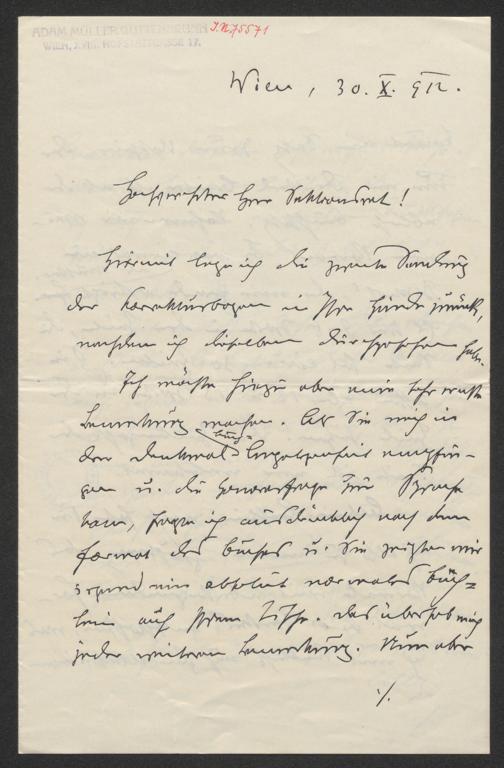 ADAM MÜLLER-GUTTENBRUNN
WIEN, XVIII. HOFSTATTGASSE 17.
J.N. 75571
Wien, 30. X. 912.
Hochverehrter Herr Sektionsrat!
Hiermit lege ich die zweite Sendung
der Korrekturbogen in Ihre Hände zurück,
nachdem ich dieselben durchgesehen habe.
Ich möchte hiezu aber eine sehr ernste
Bemerkung machen. Als Sie mich in
der Denkmalbuch-Angelegenheit empfin-
gen u. die Honorarfrage zur Sprache
kam, fragte ich ausdrücklich nach dem
Format des Buches u. Sie zeigten mir
irgend ein absolut normales Büch-
lein auf Ihrem Tische. Das überhob mich
jeder weiteren Bemerkung. Nun aber
./.